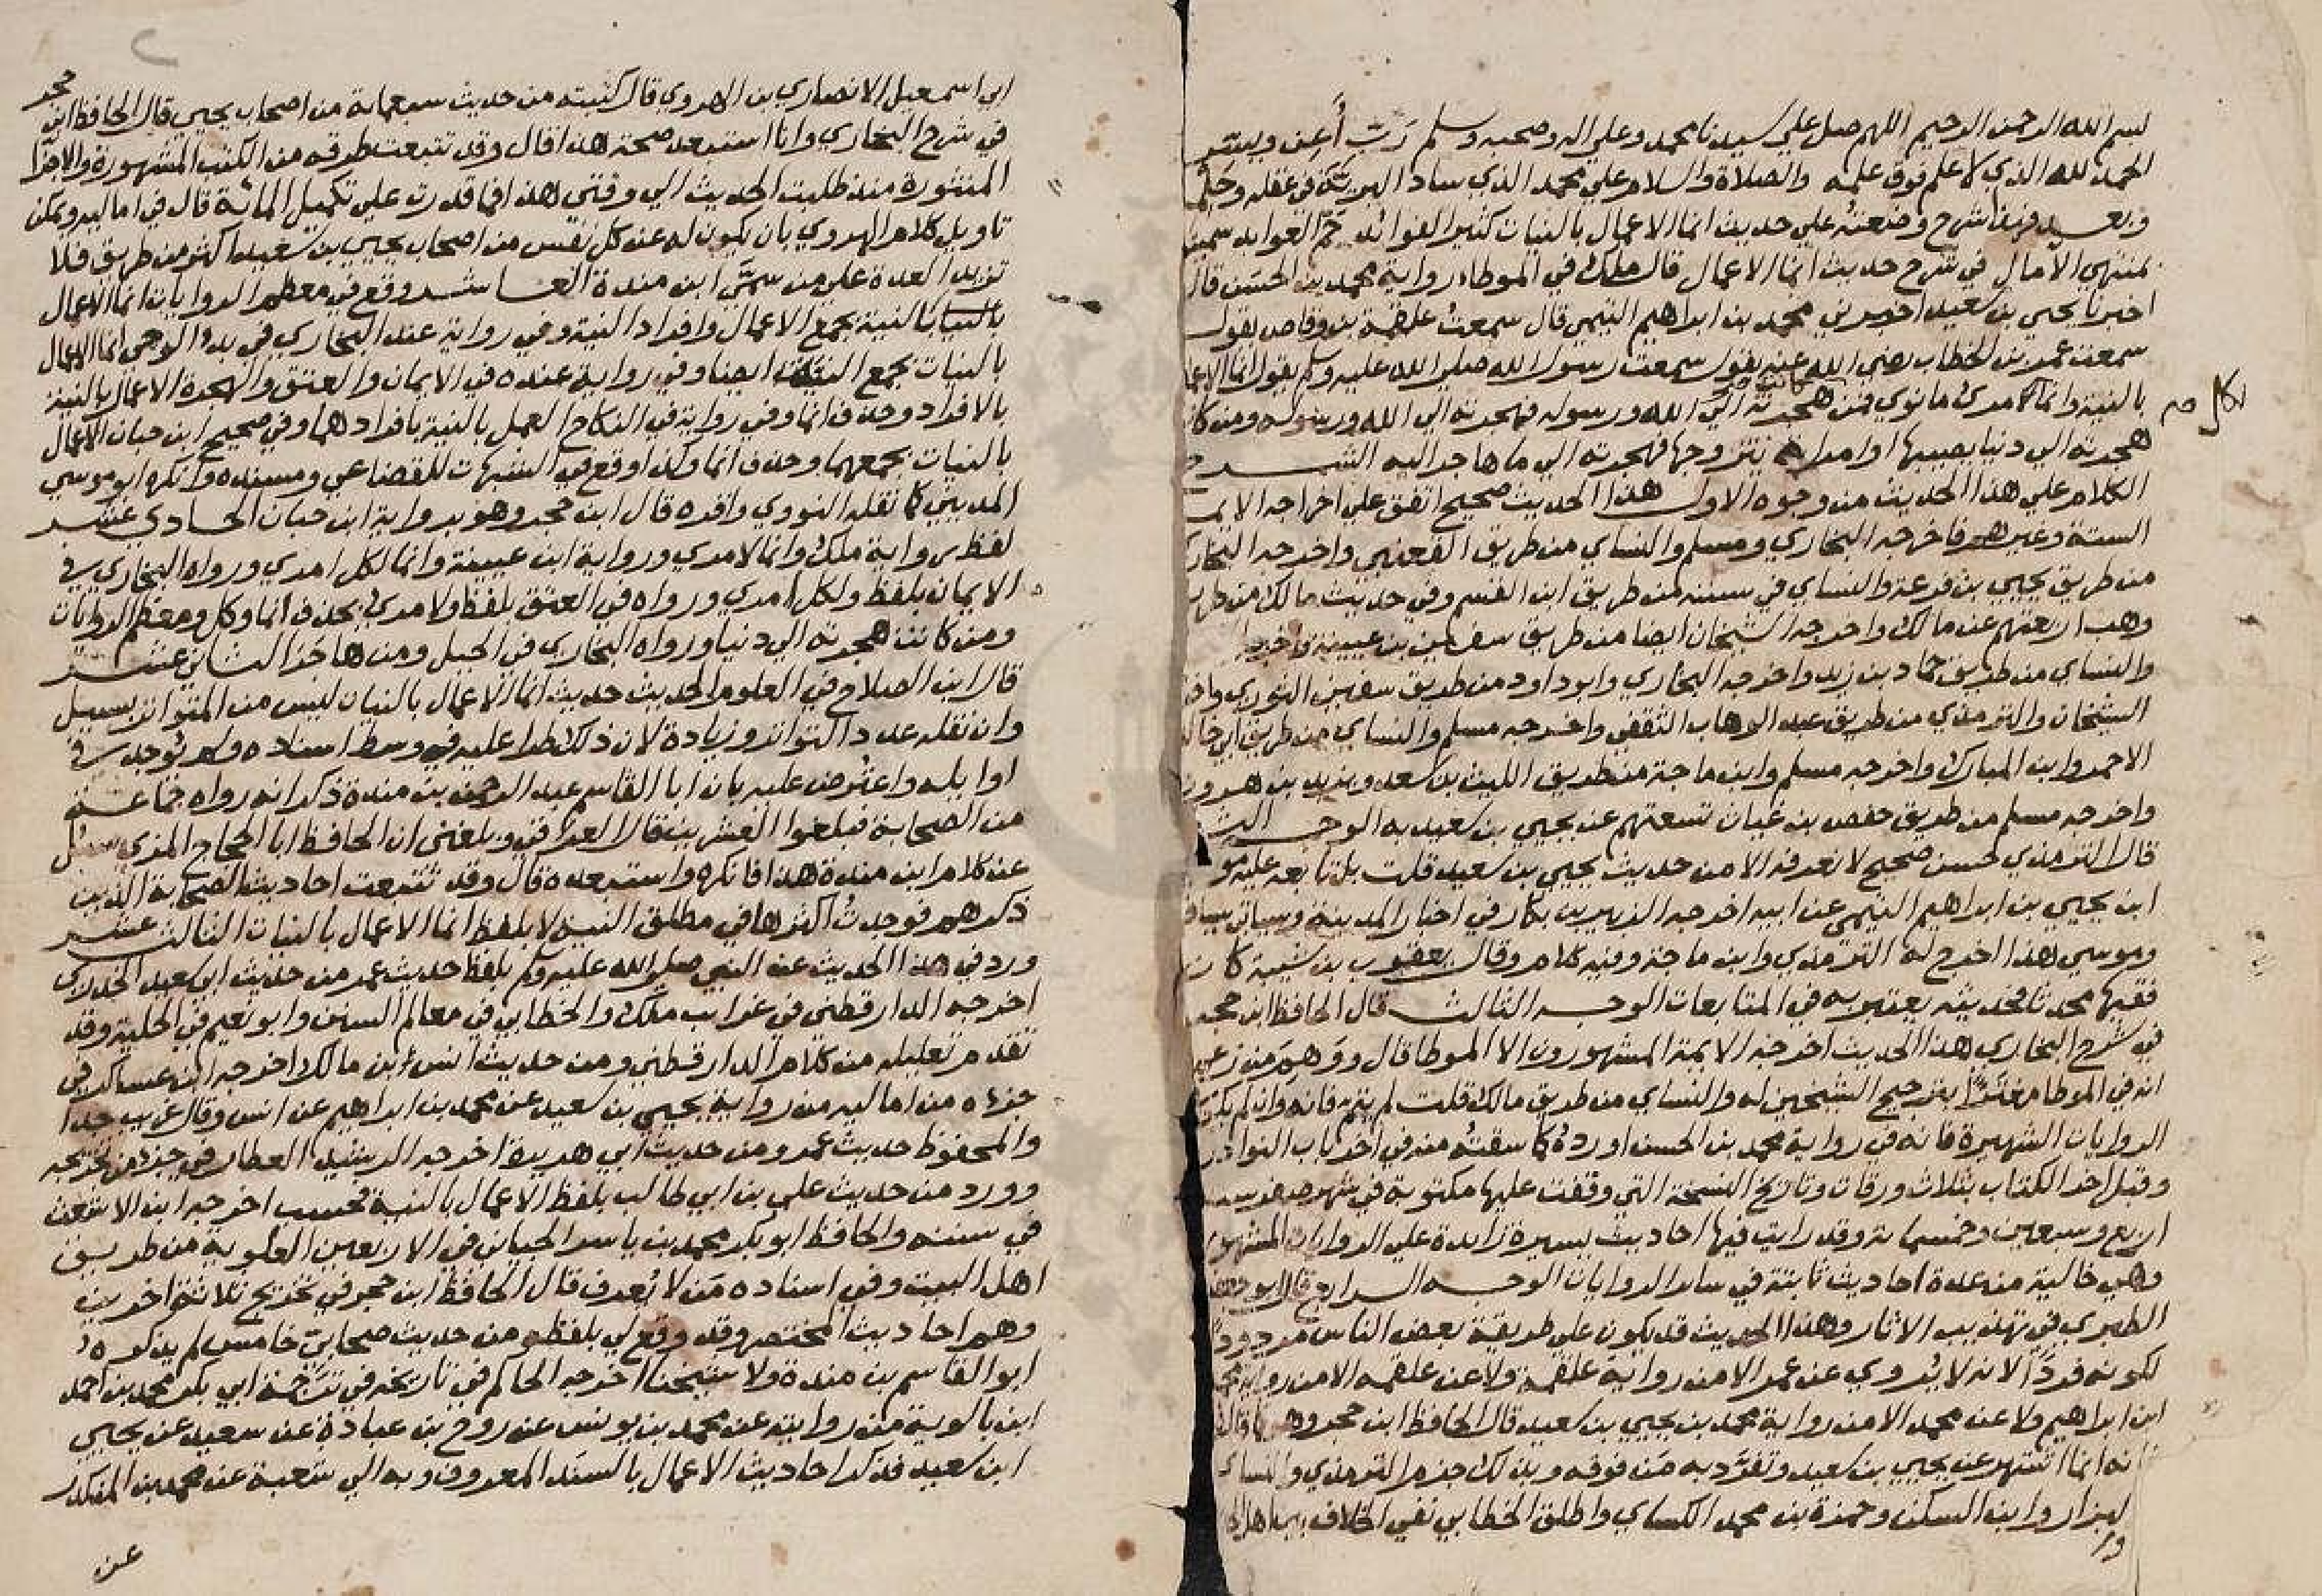 بسم الله الرحمن الرحيم اللهم صل علي سيدنا محمد وعلي اله وصحبه وسلم رَبّ أَعِن ويسر
الحمد لله الذي لا علم فوق علمه والصلاة والسلام علي محمد الذي ساد البرية في عقله وحلمه
وبعد فهذا شرح وضعته علي حديث انما الاعمال بالنيات كثير الفوائد جم العوايد سميته
بمنتهي الامال في شرح حديث انما الاعمال قال ملك في الموطا رواية محمد بن الحسن قال
اخبرنا يحيي بن سعيد اخبرني محمد بن ابراهيم التيمي قال سمعت علقمة بن وقاص يقول
سمعت عمر بن الخطاب رضي الله عنه يقول سمعت رسول الله صلي الله عليه وسلم يقول انما الاعمال
بالنية وانما لامرئ ما نوي فمن كانت هجرته الي الله ورسوله فهجرته الي الله ورسوله ومن كانت
لكل صح
هجرته الي دنيا يصيبها او امراة يتزوجها فهجرته الي ما هاجر اليه
الكلام علي هذا الحديث من وجوه الاول هذا الحديث صحيح اتفق علي اخراجه الايمة
الستة وغيرهم فاخرجه البخاري ومسلم والنساي من طريق القعنبي واخرجه البخاري
من طريق يحيي بن قزعة والنساي في سننه من طريق ابن القسم وفي حديث مالك من طريق
وهب اربعتهم عن مالك واخرجه الشيخان ايضا من طريق سفين بن عيينة واخرجه
والنساي من طريق حماد بن زيد واخرجه البخاري وابو داود من طريق سفين الثوري واخرجه
الشيخان والترمذي من طريق عبد الوهاب الثقفي واخرجه مسلم والنساي من طريق ابي خالد
الاحمر وابن المبارك واخرجه مسلم وابن ماجة من طريق الليث بن سعد ويزيد بن هرون
واخرجه مسلم من طريق حفص بن غياث تسعتهم عن يحيي بن سعيد به الوجه
قال الترمذي حسن صحيح لا نعرفه الا من حديث يحيي بن سعيد قلت بل تابعه عليه موسي
ابن يحيي بن ابراهيم التيمي عن ابيه اخرجه الزبير بن بكار في اخبار المدينة وسياتي سياقه
وموسي هذا اخرج له الترمذي وابن ماجة وفيه كلام وقال يعقوب بن شيبة كان
فقيها محدثا فحديثه يعتبر به في المتابعات الوجه الثالث قال الحافظ ابن حجر
في شرح البخاري هذا الحديث اخرجه الايمة المشهورون الا الموطا قال ووهم من زعم
انه في الموطا مغترًا بتخريج الشيخين له والنساي من طريق مالك قلت لم يتهم فانه وان لم يكن في
الروايات الشهيرة فانه في رواية محمد بن الحسن اورده كما سقته منه في اخر باب النوادر
وقبل اخر الكتاب بثلاث ورقات وتاريخ النسخة التي وقفت عليها مكتوبة في شهر صفر سنة
اربع وسبعين وخمسماية وقد رايت فيها احاديث يسيرة زايدة علي الروايات المشهورة
وهي خالية من عدة احاديث ثابتة في ساير الروايات الوجه الرابع قال ابو جعفر
الطبري في تهذيب الاثار وهذا الحديث قد يكون علي طريقة بعض الناس مردودًا
لكونه فردًا لانه لا يُروي عن عمر الا من رواية علقمة ولا عن علقمة الا من رواية محمد
ابن ابراهيم ولا عن محمد الا من رواية محمد بن يحيي بن سعيد قال الحافظ ابن حجر وهو كما قال
فانه انما اشتهر عن يحيي بن سعيد وتفرّد به من فوقه وبذلك جزم الترمذي والنساي
والبزار وابن السكن وحمزة بن محمد الكساي واطلق الخطابي نفي الخلاف بين اهل
ابي اسمعيل الانصاري بن الهروي قال كتبته من حديث سبعماية من اصحاب يحيي قال الحافظ ابن حجر
في شرح البخاري وانا استبعد صحة هذا قال وقد تتبعت طرقه من الكتب المشهورة والاجزا
المنثورة منذ طلبت الحديث الي وقتي هذا فما قدرت علي تكميل المائة قال في اماليه ويمكن
تاويل كلام الهروي بان يكون له عن كل نفس من اصحاب يحيي بن سعيد اكثر من طريق فلا
تزيد العدة علي من سمّي ابن مندة العاشر وقع في معظم الروايات انما الاعمال
بالنية بجمع الاعمال وافراد النية وفي رواية عند البخاري في بدء الوحي انما الاعمال
بالنيات بجمع النيات ايضا وفي رواية عنده في الايمان والعتق والهجرة الاعمال بالنية
بالافراد وحذف انما وفي رواية في النكاح العمل بالنية بافرادهما وفي صحيح ابن حبان الاعمال
بالنيات بجمعهما وحذف انما وكذا وقع في الشهاب للقضاعي ومسنده وانكره ابو موسي
المديني كما نقله النووي واقره قال ابن حجر وهو برواية ابن حبان الحادي عشر
لفظ رواية ملك وانما لامري ورواية ابن عيينة وانما لكل امري ورواه البخاري في
الايمان بلفظ ولكل امري ورواه في العتق بلفظ ولامري بحذف انما وكل ومعظم الروايات
ومن كانت هجرته الي دنيا ورواه البخاري في الحيل ومن هاجر الثاني عشر
قال ابن الصلاح في العلوم الحديث حديث انما الاعمال بالنيات ليس من المتواتر بسبيل
وان نقله عدد التواتر وزيادة لان ذلك طرا عليه في وسط اسناده ولم يوجد في
اوايله واعترض عليه بان ابا القاسم عبد الرحمن بن مندة ذكر انه رواه جماعة
من الصحابة فبلغوا العشرين قال العراقي وبلغني ان الحافظ ابا الحجاج المزي سئل
عن كلام ابن مندة هذا فانكره واستبعده قال وقد تتبعت احاديث الصحابة الذين
ذكرهم فوجدت اكثرها في مطلق النية لا بلفظ انما الاعمال بالنيات الثالث عشر
ورد في هذا الحديث عن النبي صلي الله عليه وسلم بلفظ حديث عمر من حديث ابي سعيد الخدري
اخرجه الدارقطني في غرايب ملك والخطابي في معالم السنن وابو نعيم في الحلية وقد
تقدم تعليله من كلام الدارقطني ومن حديث انس ابن مالك اخرجه ابن عساكر في
جزء من اماليه من رواية يحيي بن سعيد عن محمد بن ابراهيم عن انس وقال غريب جدا
والمحفوظ حديث عمر ومن حديث ابي هريرة اخرجه الرشيد العطار في جزء من تخريجه
وورد من حديث علي بن ابي طالب بلفظ الاعمال بالنية فحسب اخرجه ابن الاشعث
في سننه والحافظ ابو بكر محمد بن ياسر الجياني في الاربعين العلوية من طريق
اهل البيت وفي اسناده من لا يُعرف قال الحافظ ابن حجر في تخريج ثلاثة اخرين
وهم احاديث المختصر وقد وقع لي بلفظه من حديث صحابيّ خامس لم يذكره
ابو القاسم بن مندة ولا شيخنا اخرجه الحاكم في تاريخه في ترجمة ابي بكر محمد بن احمد
ابن بالوية من روايته عن محمد بن يونس عن روح بن عبادة عن سعيد عن يحيي
ابن سعيد فذكر احاديث الاعمال بالسند المعروف وبه الي شعبة عن محمد بن المنكدر
عن